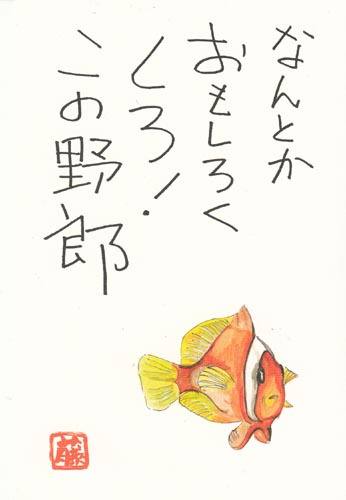 なんとか
おもしろく
しろ！
この野郎
藤